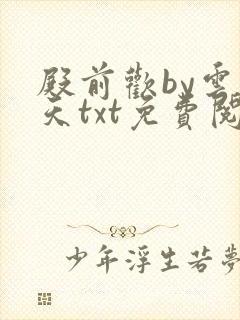 殿前歡by雲
天txt免費閱
少年浮生若夢